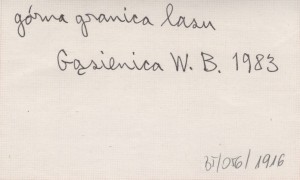 górna granica lasu
Gąsienica W. B. 1983
/1916